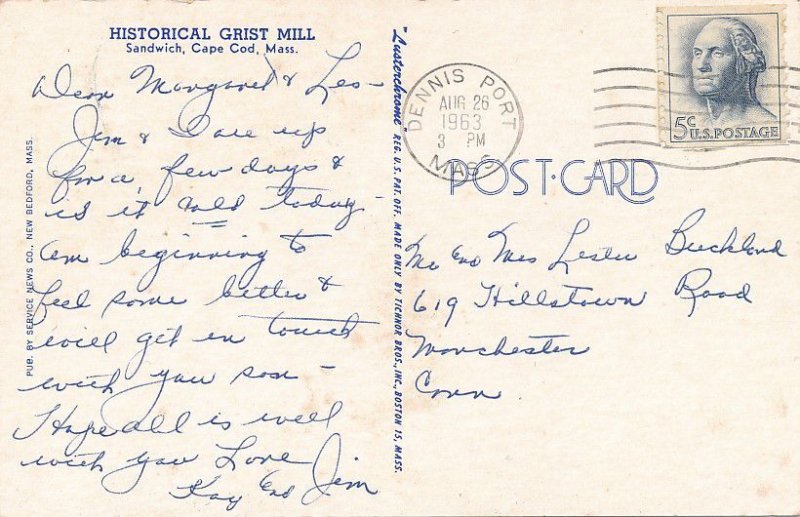 HISTORICAL GRIST MILL
Sandwich, Cape Cod, Mass.
Dear Margaret & Les -
Jim & I are up
for a few days &
is it cold today -
am beginning to
feel some better &
will get in touch
with you soon -
Hope all is well
with you Love
Kay and Jim
PUB. BY SERVICE NEWS CO., NEW BEDFORD, MASS.
"Lusterchrome" REG. U. S. PAT. OFF. MADE ONLY BY TICHNOR BROS., INC., BOSTON 15, MASS.
DENNIS PORT
AUG 26
1963
3 PM
MASS
5c U.S. POSTAGE
POST-CARD
Mr and Mrs Lester Buckland
619 Hillstown Road
Manchester
Conn